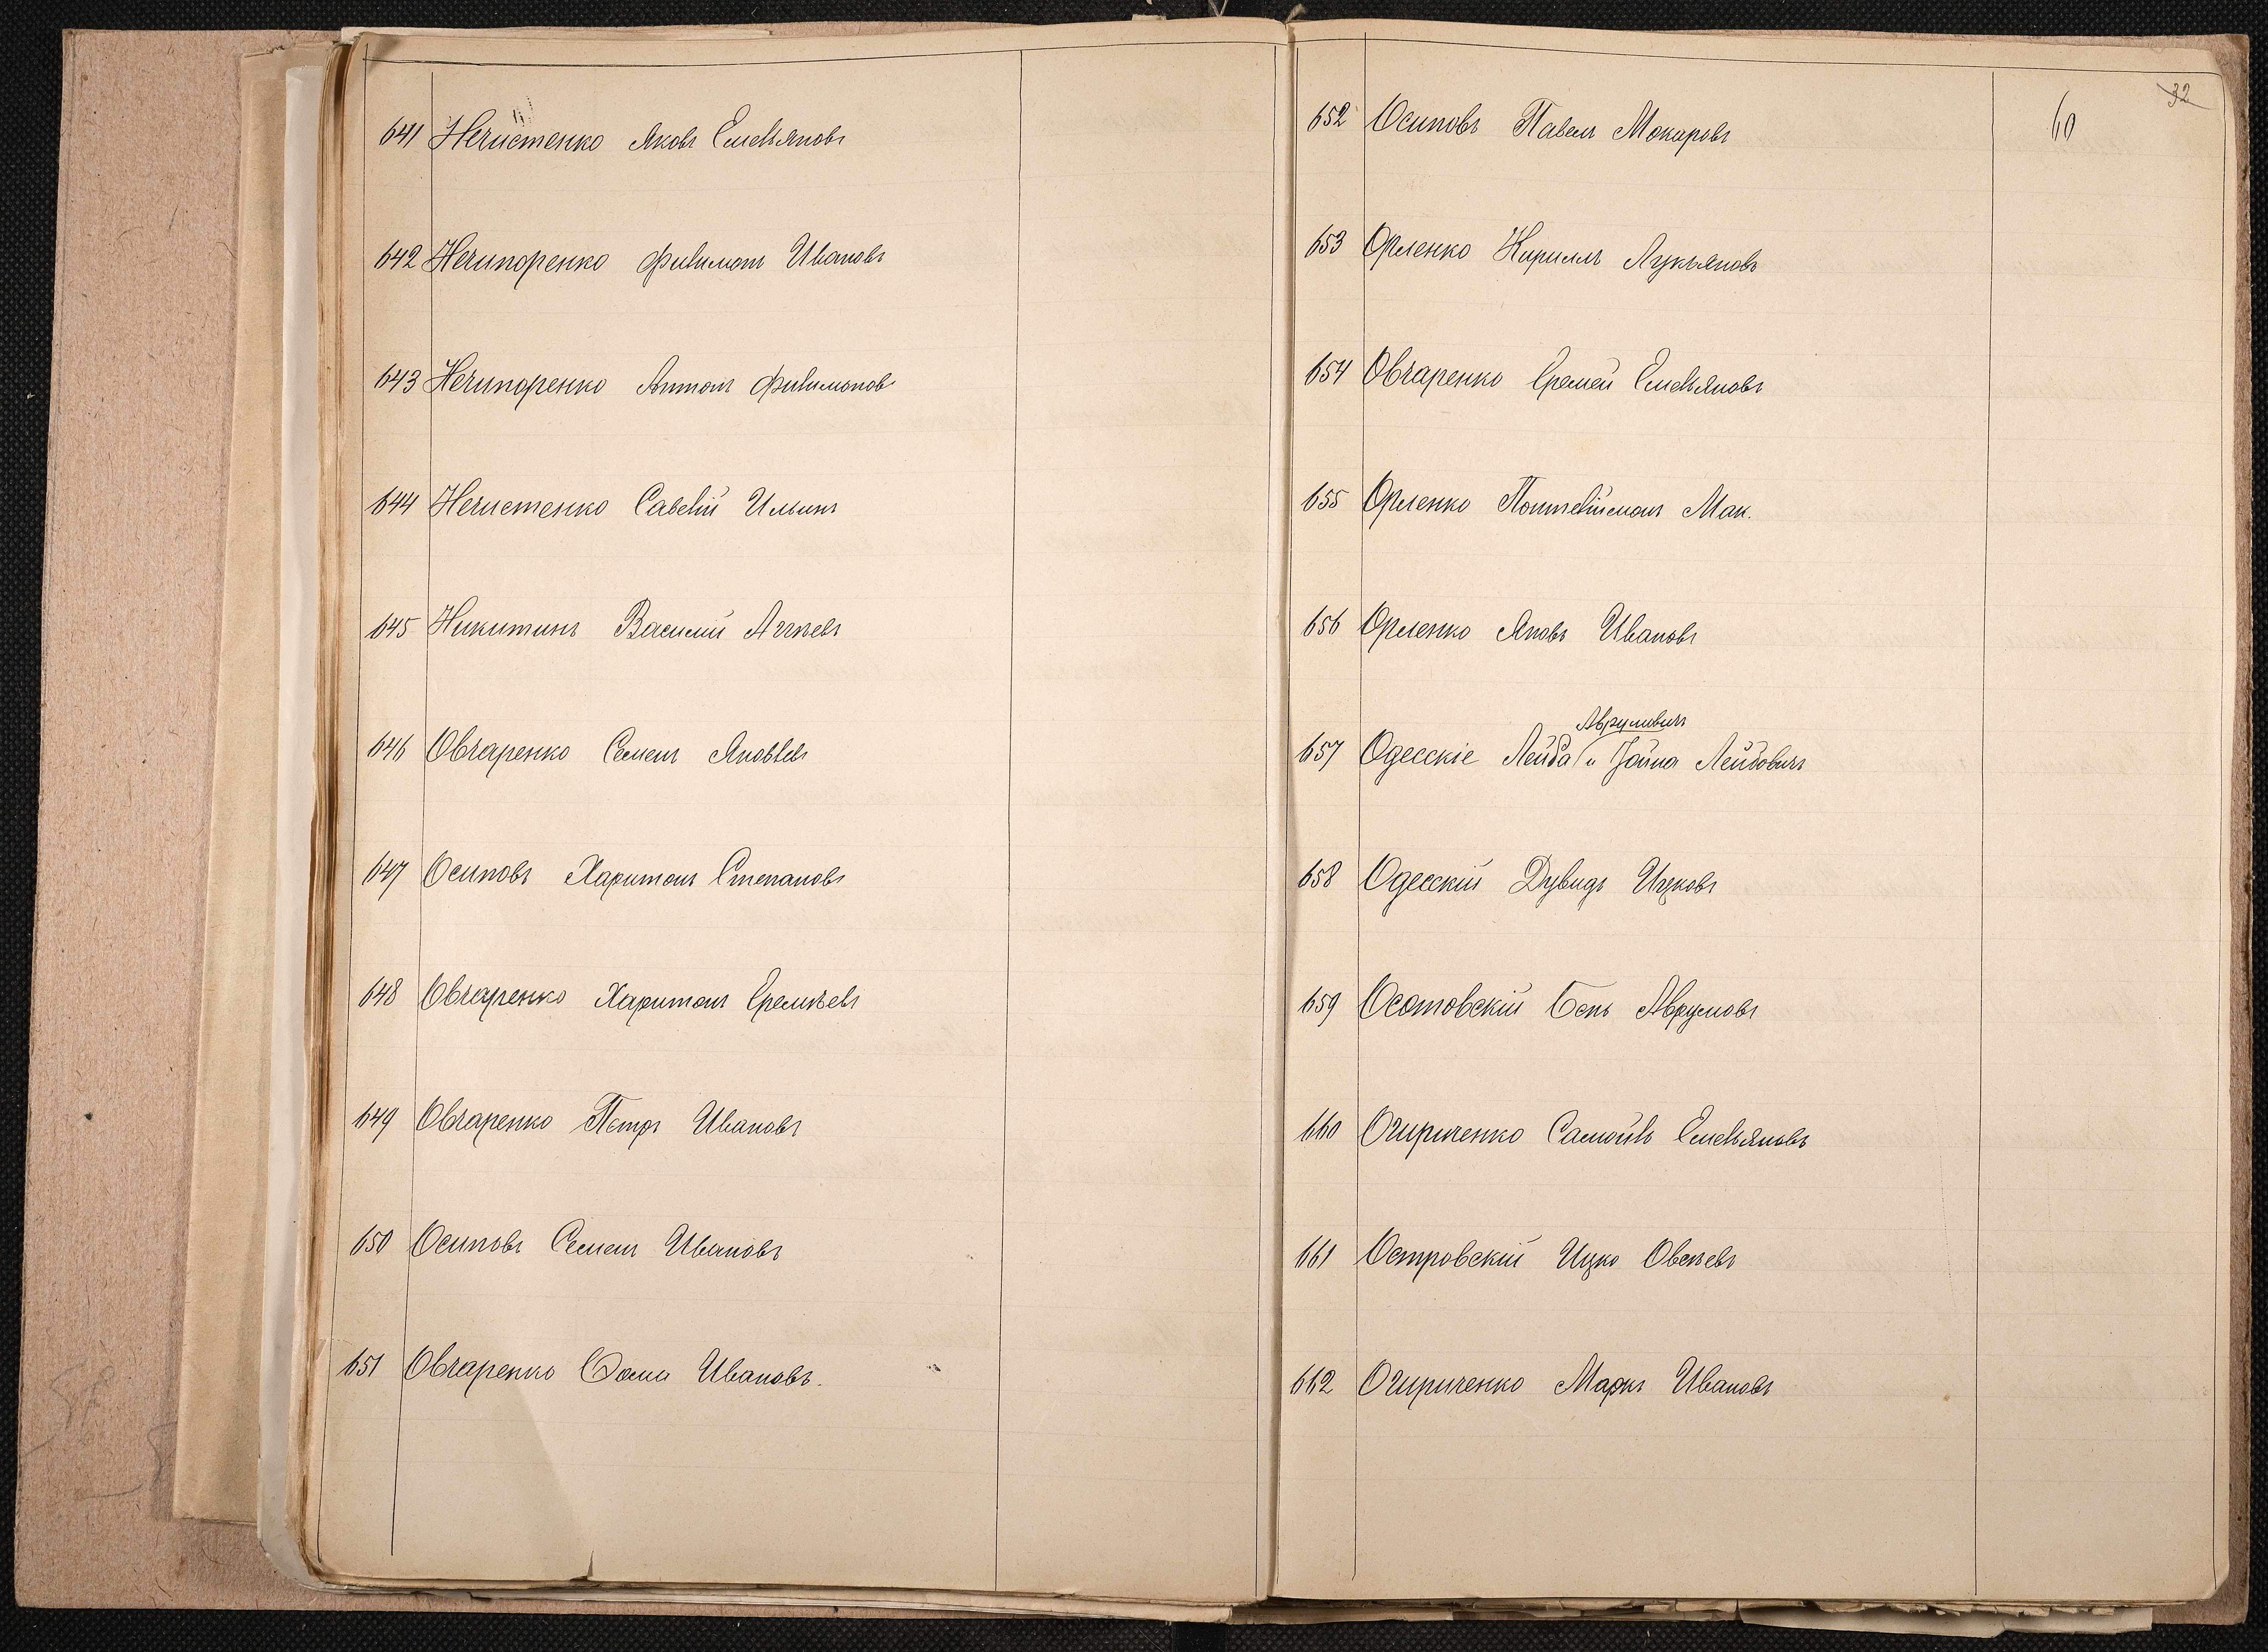 641 Нечистенко Яковъ Емельяновъ
642 Нечипоренко Филимонъ Ивановъ
643 Нечипоренко Антонъ Филимоновъ
644 Нечистенко Савелій Ильинъ
645 Никитинъ Василій Агѣевъ
646 Овчаренко Семенъ Яковлевъ
647 Осиповъ Харитонъ Степановъ
648 Овчаренко Харитонъ Еремѣевъ
649 Овчаренко Петръ Ивановъ
650 Осиповъ Семенъ Ивановъ
651 Овчаренко Фома Ивановъ.
32
60
652 Осиповъ Павелъ Макаровъ
653 Орленко Кириллъ Лукьяновъ
654 Овчаренко Еремей Емельяновъ
655 Орленко Понтелѣймонъ Мак.
656 Орленко Яковъ Ивановъ
Аврумовичъ
657 Одесскіе Лейба и Іойна Лейбовичъ
658 Одесскій Дувидъ Ицковъ
659 Осотовскій Бенъ Аврумовъ
660 Огириченко Самойлъ Емельяновъ
661 Островскій Ицко Овсѣевъ
662 Огириченко Маркъ Ивановъ